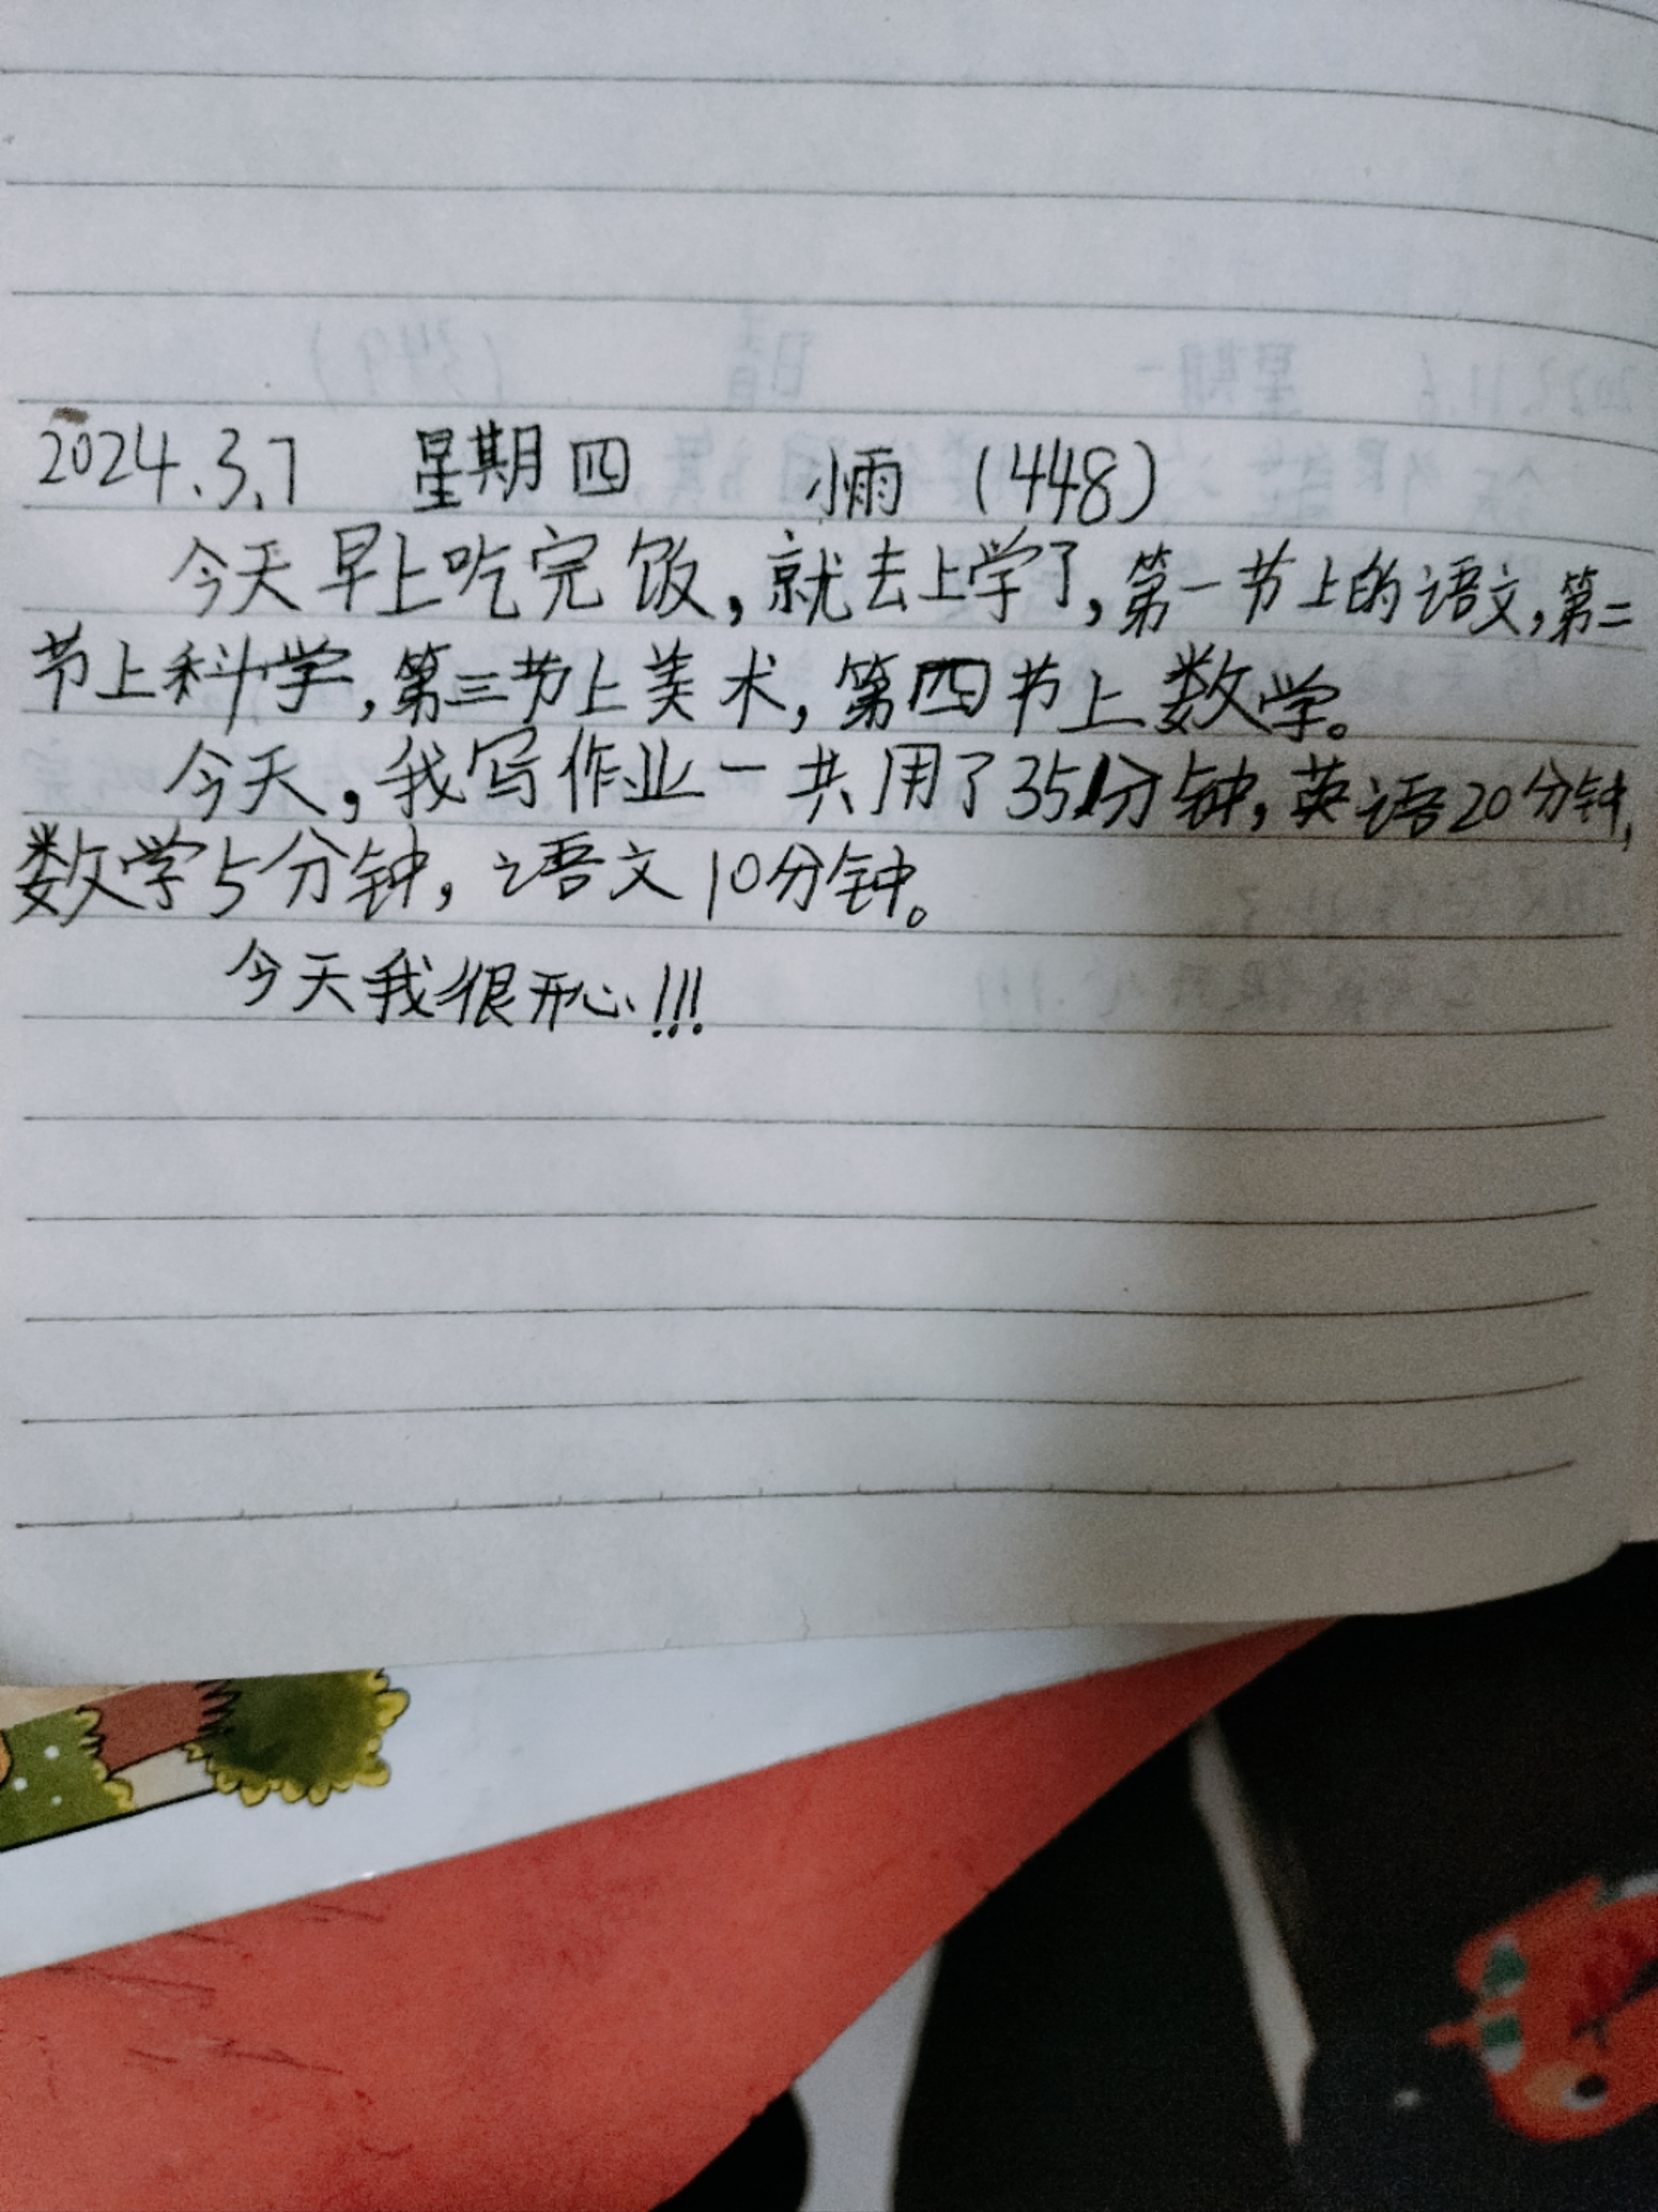 2024.3.7 星期四 小雨 (448)
今天早上吃完饭,就去上学了,第一节上的语文,第二
节上科学,第三节上美术,第四节上数学。
今天,我写作业一共用了35分钟,英语20分钟,
数学5分钟,语文10分钟。
今天我很开心!!!